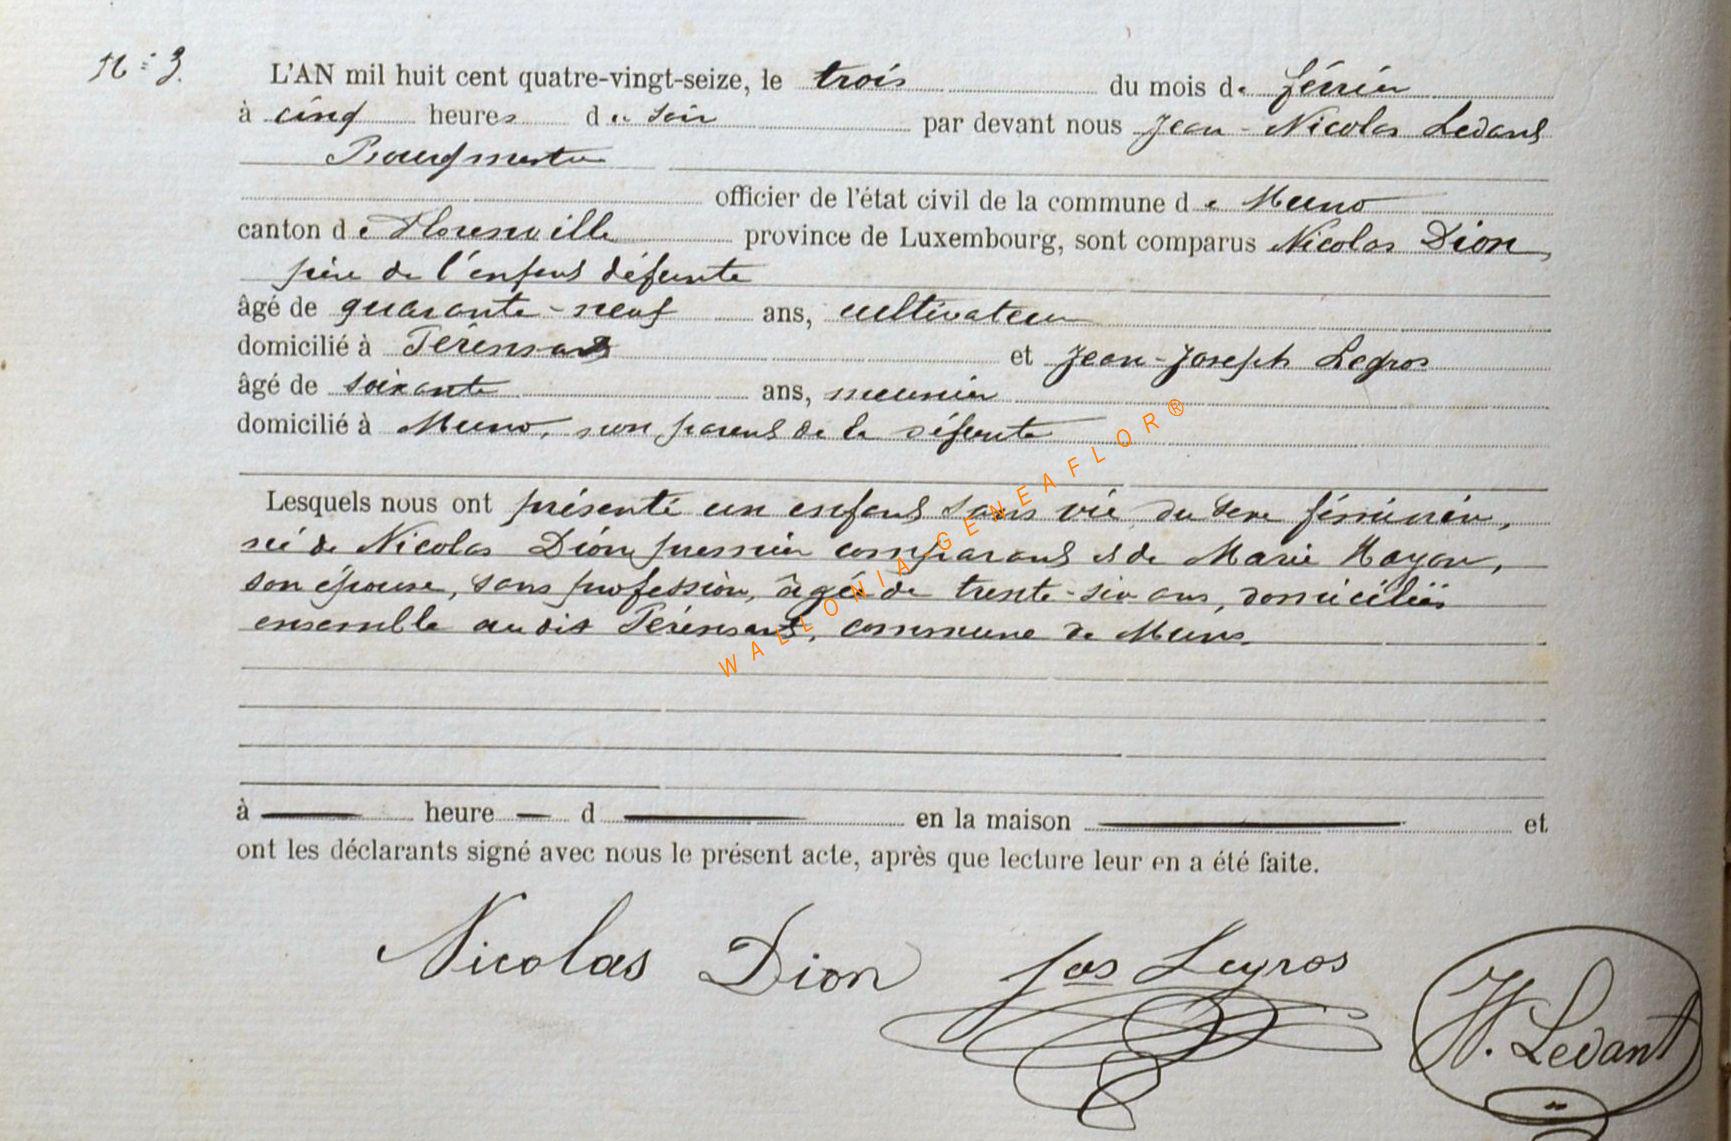 N° 3.
L'AN mil huit cent quatre-vingt-seize, le trois du mois de février
à cinq heures du soir par devant nous Jean-Nicolas Ledant
Bourgmestre
officier de l'état civil de la commune de Muno
canton de Florenville province de Luxembourg, sont comparus Nicolas Dion,
père de l'enfant défunte
âgé de quarante-neuf ans, cultivateur
domicilié à Térensart et Jean-Joseph Legros
âgé de soixante ans, meunier
domicilié à Muno, non parent de la défunte
Lesquels nous ont présenté un enfant sans vie, du sexe féminin,
né de Nicolas Dion, premier comparant et de Marie Hayon,
son épouse, sans profession, âgée de trente-six ans, domiciliés
ensemble au dit Térensart, commune de Muno.
à heure d en la maison et
ont les déclarants signé avec nous le présent acte, après que lecture leur en a été faite.
Nicolas Dion Jos Legros N. Ledant
WALLONIA GENEAFLOR®